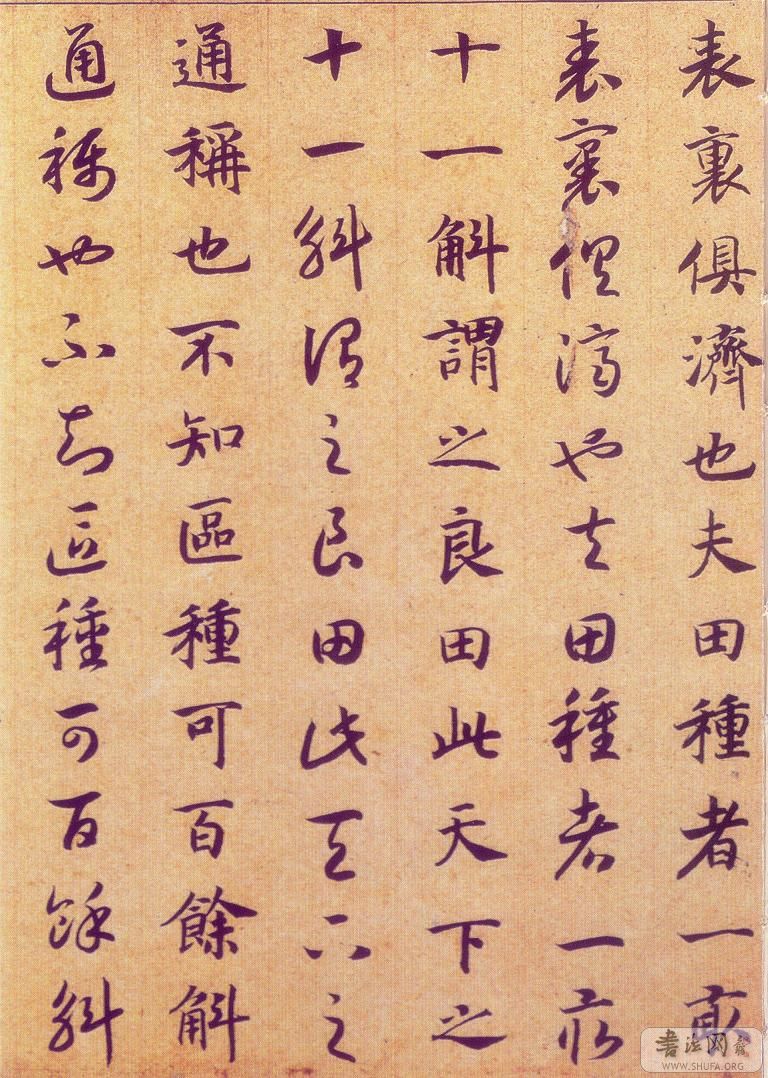 表裏俱濟也夫田種者一畝
表裏俱濟也夫田種者一畝
十一斛謂之良田此天下之
十一斛謂之良田此天下之
通稱也不知區種可百餘斛
通稱也不知區種可百餘斛
書法网
WWW.SHUFA.ORG